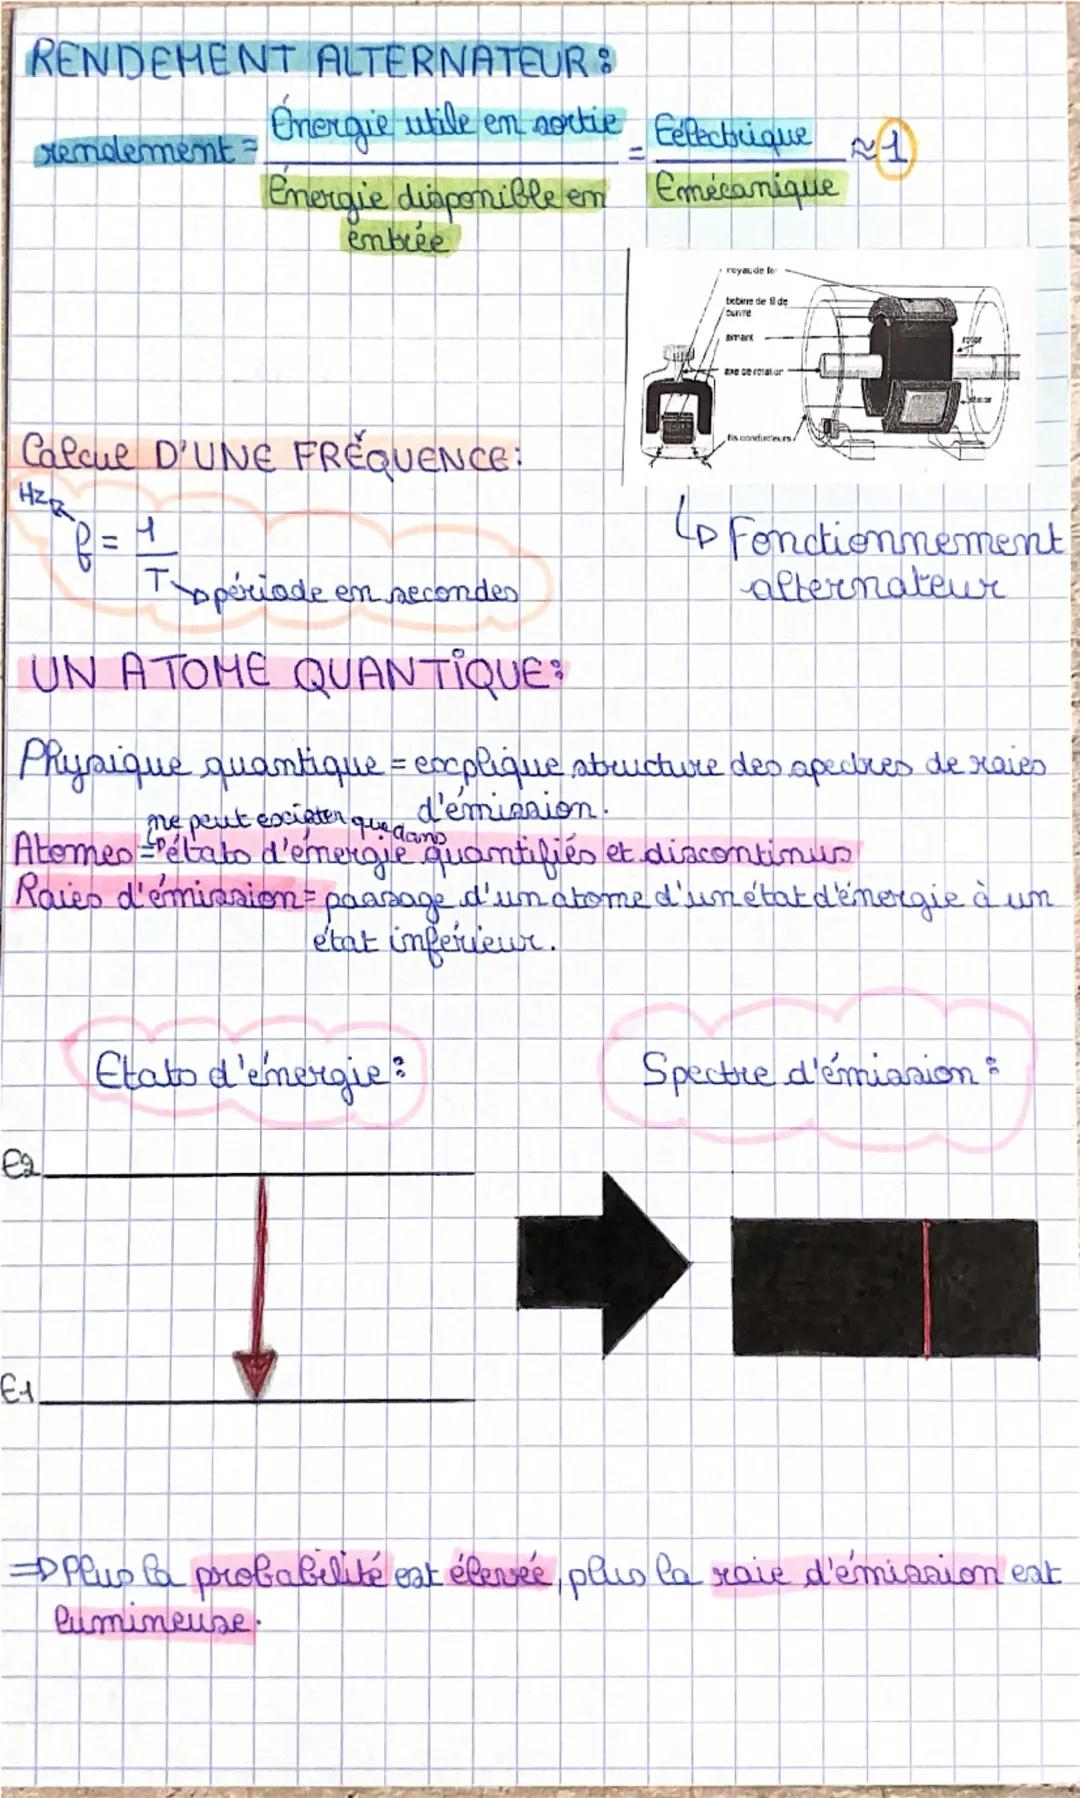 RENDEMENT ALTERNATEUR:
rendement = Énergie utile en sortie / Énergie disponible en entrée = Eélectrique / Emécanique ≈ 1
noyau de fer
bobine de fil de cuivre
aimant
axe de rotation
fils conducteurs
rotor
stator
Calcul D'UNE FRÉQUENCE:
Hz
f = 1 / T → période en secondes
↳ Fonctionnement
alternateur
UN ATOME QUANTIQUE:
Physique quantique = explique structure des spectres de raies
d'émission.
ne peut exister que dans
Atomes = états d'énergie quantifiés et discontinus
Raies d'émission = passage d'un atome d'un état d'énergie à un
état inférieur.
Etats d'énergie:
Spectre d'émission:
E2
E1
⇒ Plus la probabilité est élevée, plus la raie d'émission est
lumineuse.